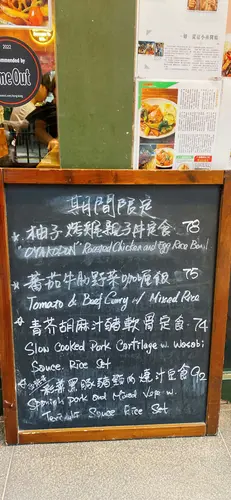 2022
ommended by
me Out
期間限定
柚子烤雞親子丼定食 78
"OYAKODON" Roasted Chicken and Egg Rice Bowl
蕃茄牛肋野菜咖喱飯 75
Tomato & Beef Curry w Mixed Rice
青芥胡麻汁豬軟骨定食 74
Slow Cooked Pork Cartilage w. Wasabi
Sauce Rice Set
野菜黑豚豬頸肉燒汁定食 92
Spanish Pork and Mixed Vege w.
Teriyaki Sauce Rice Set